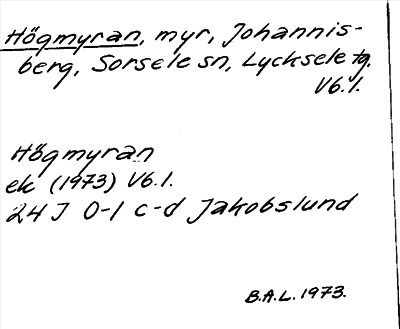 Högmyran, myr, Johannis-
berg, Sorsele sn, Lycksele tg.
Vb.l.
Högmyran
ek (1973) Vb.l.
24 J 0-1 c-d Jakobslund
B.A.L. 1973.